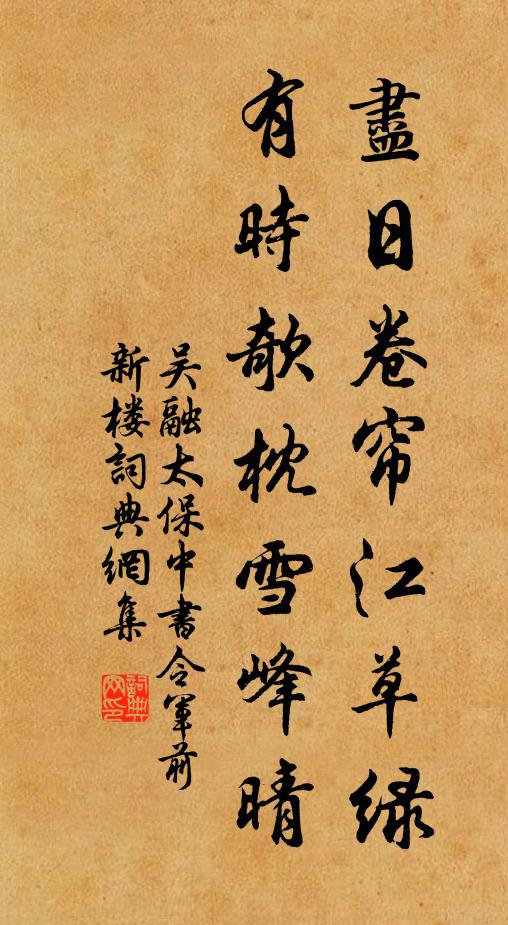 盡日卷帘江草绿
有時欹枕雪峰晴
吴融太保中書令軍前
新楼詞典網集
詞典網印